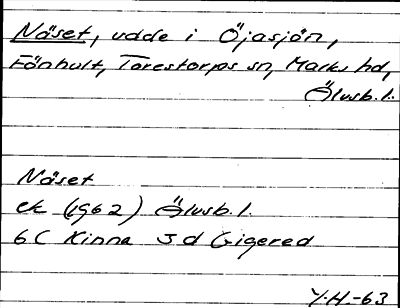 Näset, udde i Öjasjön,
Fönhult, Torestorps sn, Marks hd,
Älvsb. l.
Näset
ek (1962) Älvsb. l.
6C Kinna 3 d Gigered
Y.H.-63